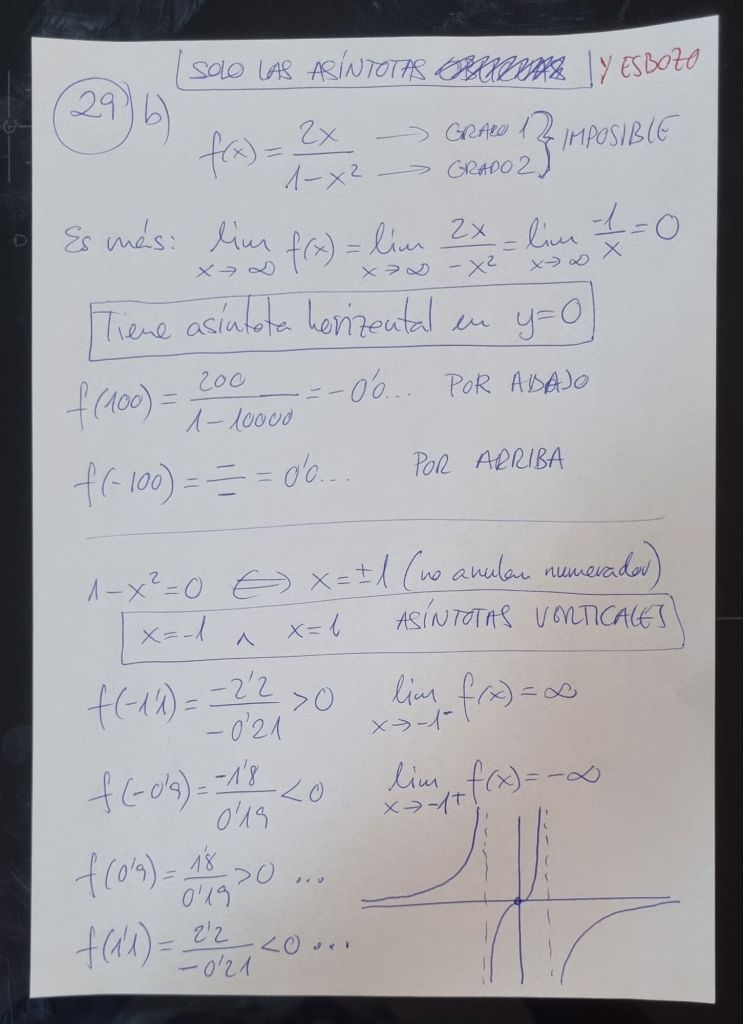 SOLO LAS ASÍNTOTAS Y ESBOZO
29 b)
f(x) = 2x / (1-x²) → GRADO 1 → GRADO 2 } IMPOSIBLE
Es más: lim x→∞ f(x) = lim x→∞ 2x / -x² = lim x→∞ -1/x = 0
Tiene asíntota horizontal en y=0
f(100) = 200 / (1-10000) = -0'0... POR ABAJO
f(-100) = - / - = 0'0... POR ARRIBA
1-x²=0 ⟺ x=±1 (no anulan numerador)
x=-1 ∧ x=1 ASÍNTOTAS VERTICALES
f(-1'1) = -2'2 / -0'21 > 0 lim x→-1⁻ f(x) = ∞
f(-0'9) = -1'8 / 0'19 < 0 lim x→-1⁺ f(x) = -∞
f(0'9) = 1'8 / 0'19 > 0 ...
f(1'1) = 2'2 / -0'21 < 0 ...